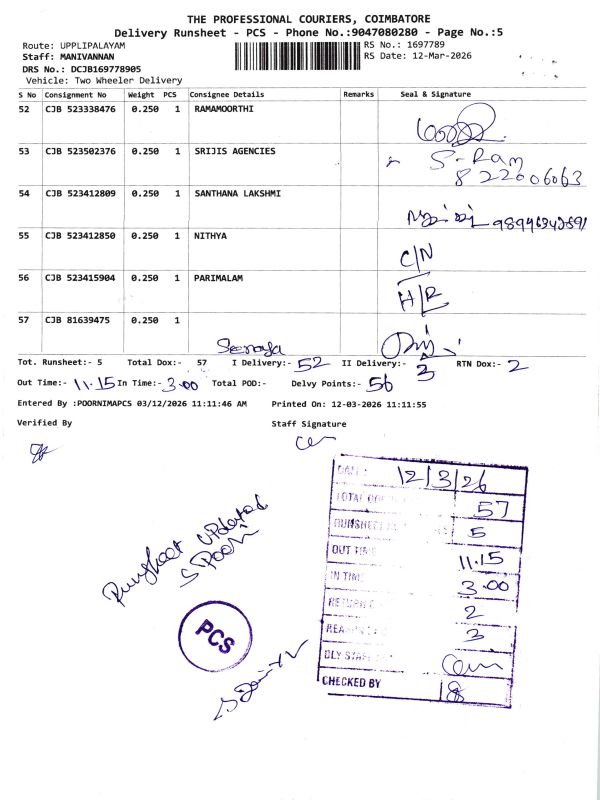 THE PROFESSIONAL COURIERS, COIMBATORE
Delivery Runsheet - PCS - Phone No.:9047080280 - Page No.:5
Route: UPPLIPALAYAM
RS No.: 1697789
Staff: MANIVANNAN
RS Date: 12-Mar-2026
DRS No.: DCJB169778905
Vehicle: Two Wheeler Delivery
S No Consignment No Weight PCS Consignee Details Remarks Seal & Signature
52 CJB 523338476 0.250 1 RAMAMOORTHI
53 CJB 523502376 0.250 1 SRIJIS AGENCIES S-Ram
54 CJB 523412809 0.250 1 SANTHANA LAKSHMI
55 CJB 523412850 0.250 1 NITHYA C/N
56 CJB 523415904 0.250 1 PARIMALAM H/R
57 CJB 81639475 0.250 1
Tot. Runsheet:- 5 Total Dox:- 57 I Delivery:- 52 II Delivery:- 3 RTN Dox:- 2
Out Time:- 11.15 In Time:- 3.00 Total POD:- Delvy Points:- 56
Entered By :POORNIMAPCS 03/12/2026 11:11:46 AM Printed On: 12-03-2026 11:11:55
Verified By Staff Signature
DATE: 12/3/26
TOTAL 57
RUNSHEET 5
OUT TIME 11.15
IN TIME 3.00
RETURN 2
3
DLY STAFF
CHECKED BY
Runsheet updated
PCS